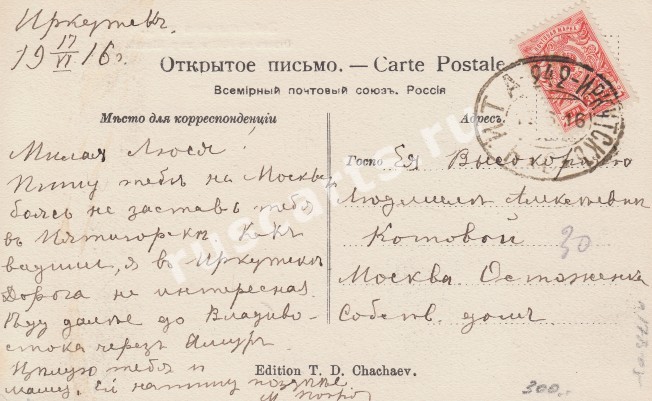 Иркутскъ.
19 17/VI 16 г.
Открытое письмо. — Carte Postale
Всемірный почтовый союзъ. Россія
Мѣсто для корреспонденціи
Адресъ.
Милая Люся!
Пишу тебѣ на Москву,
боясь не застать тебя
въ Пятигорскѣ. Какъ
видишь, я въ Иркутскѣ
Дорога не интересная
Ѣду далѣе до Владиво-
стока черезъ Амуръ
Цѣлую тебя и
маму. Ей напишу позднѣе
М.
Госпо Ея Высокородію
Людмилѣ Алексѣевнѣ
Котовой
Москва. Остоженка
Собств. домъ.
30
942-ИРКУТСК
Edition T. D. Chachaev.
300.-
ruscarts.ru